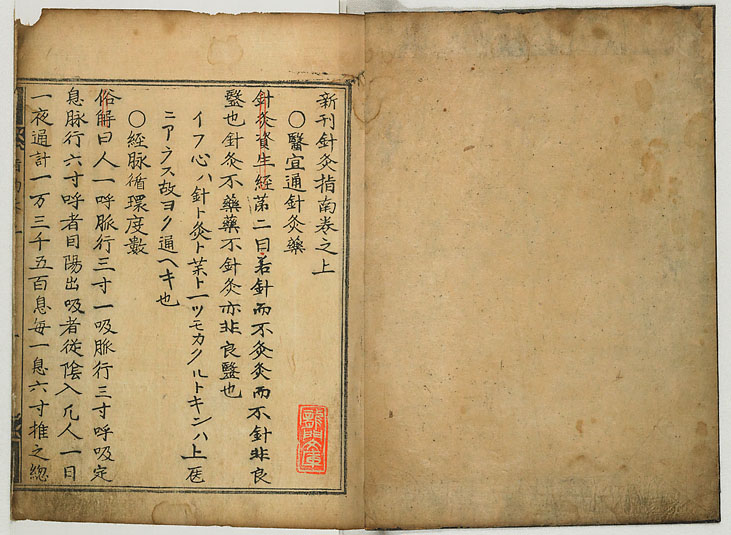 新刊針灸指南巻之上
〇醫宜通針灸藥
針灸資生經第二曰若針而不灸灸而不針非良
毉也針灸不藥藥不針灸亦非良毉也
イフ心ハ針ト灸ト薬ト一ツモカクルトキンハ上医
ニアラス故ヨク通ヘキ也
〇經脉循環度數
俗解曰人一呼脈行三寸一吸脈行三寸呼吸定
息脉行六寸呼者因陽出吸者從陰入凡人一日
一夜通計一万三千五百息每一息六寸推之總